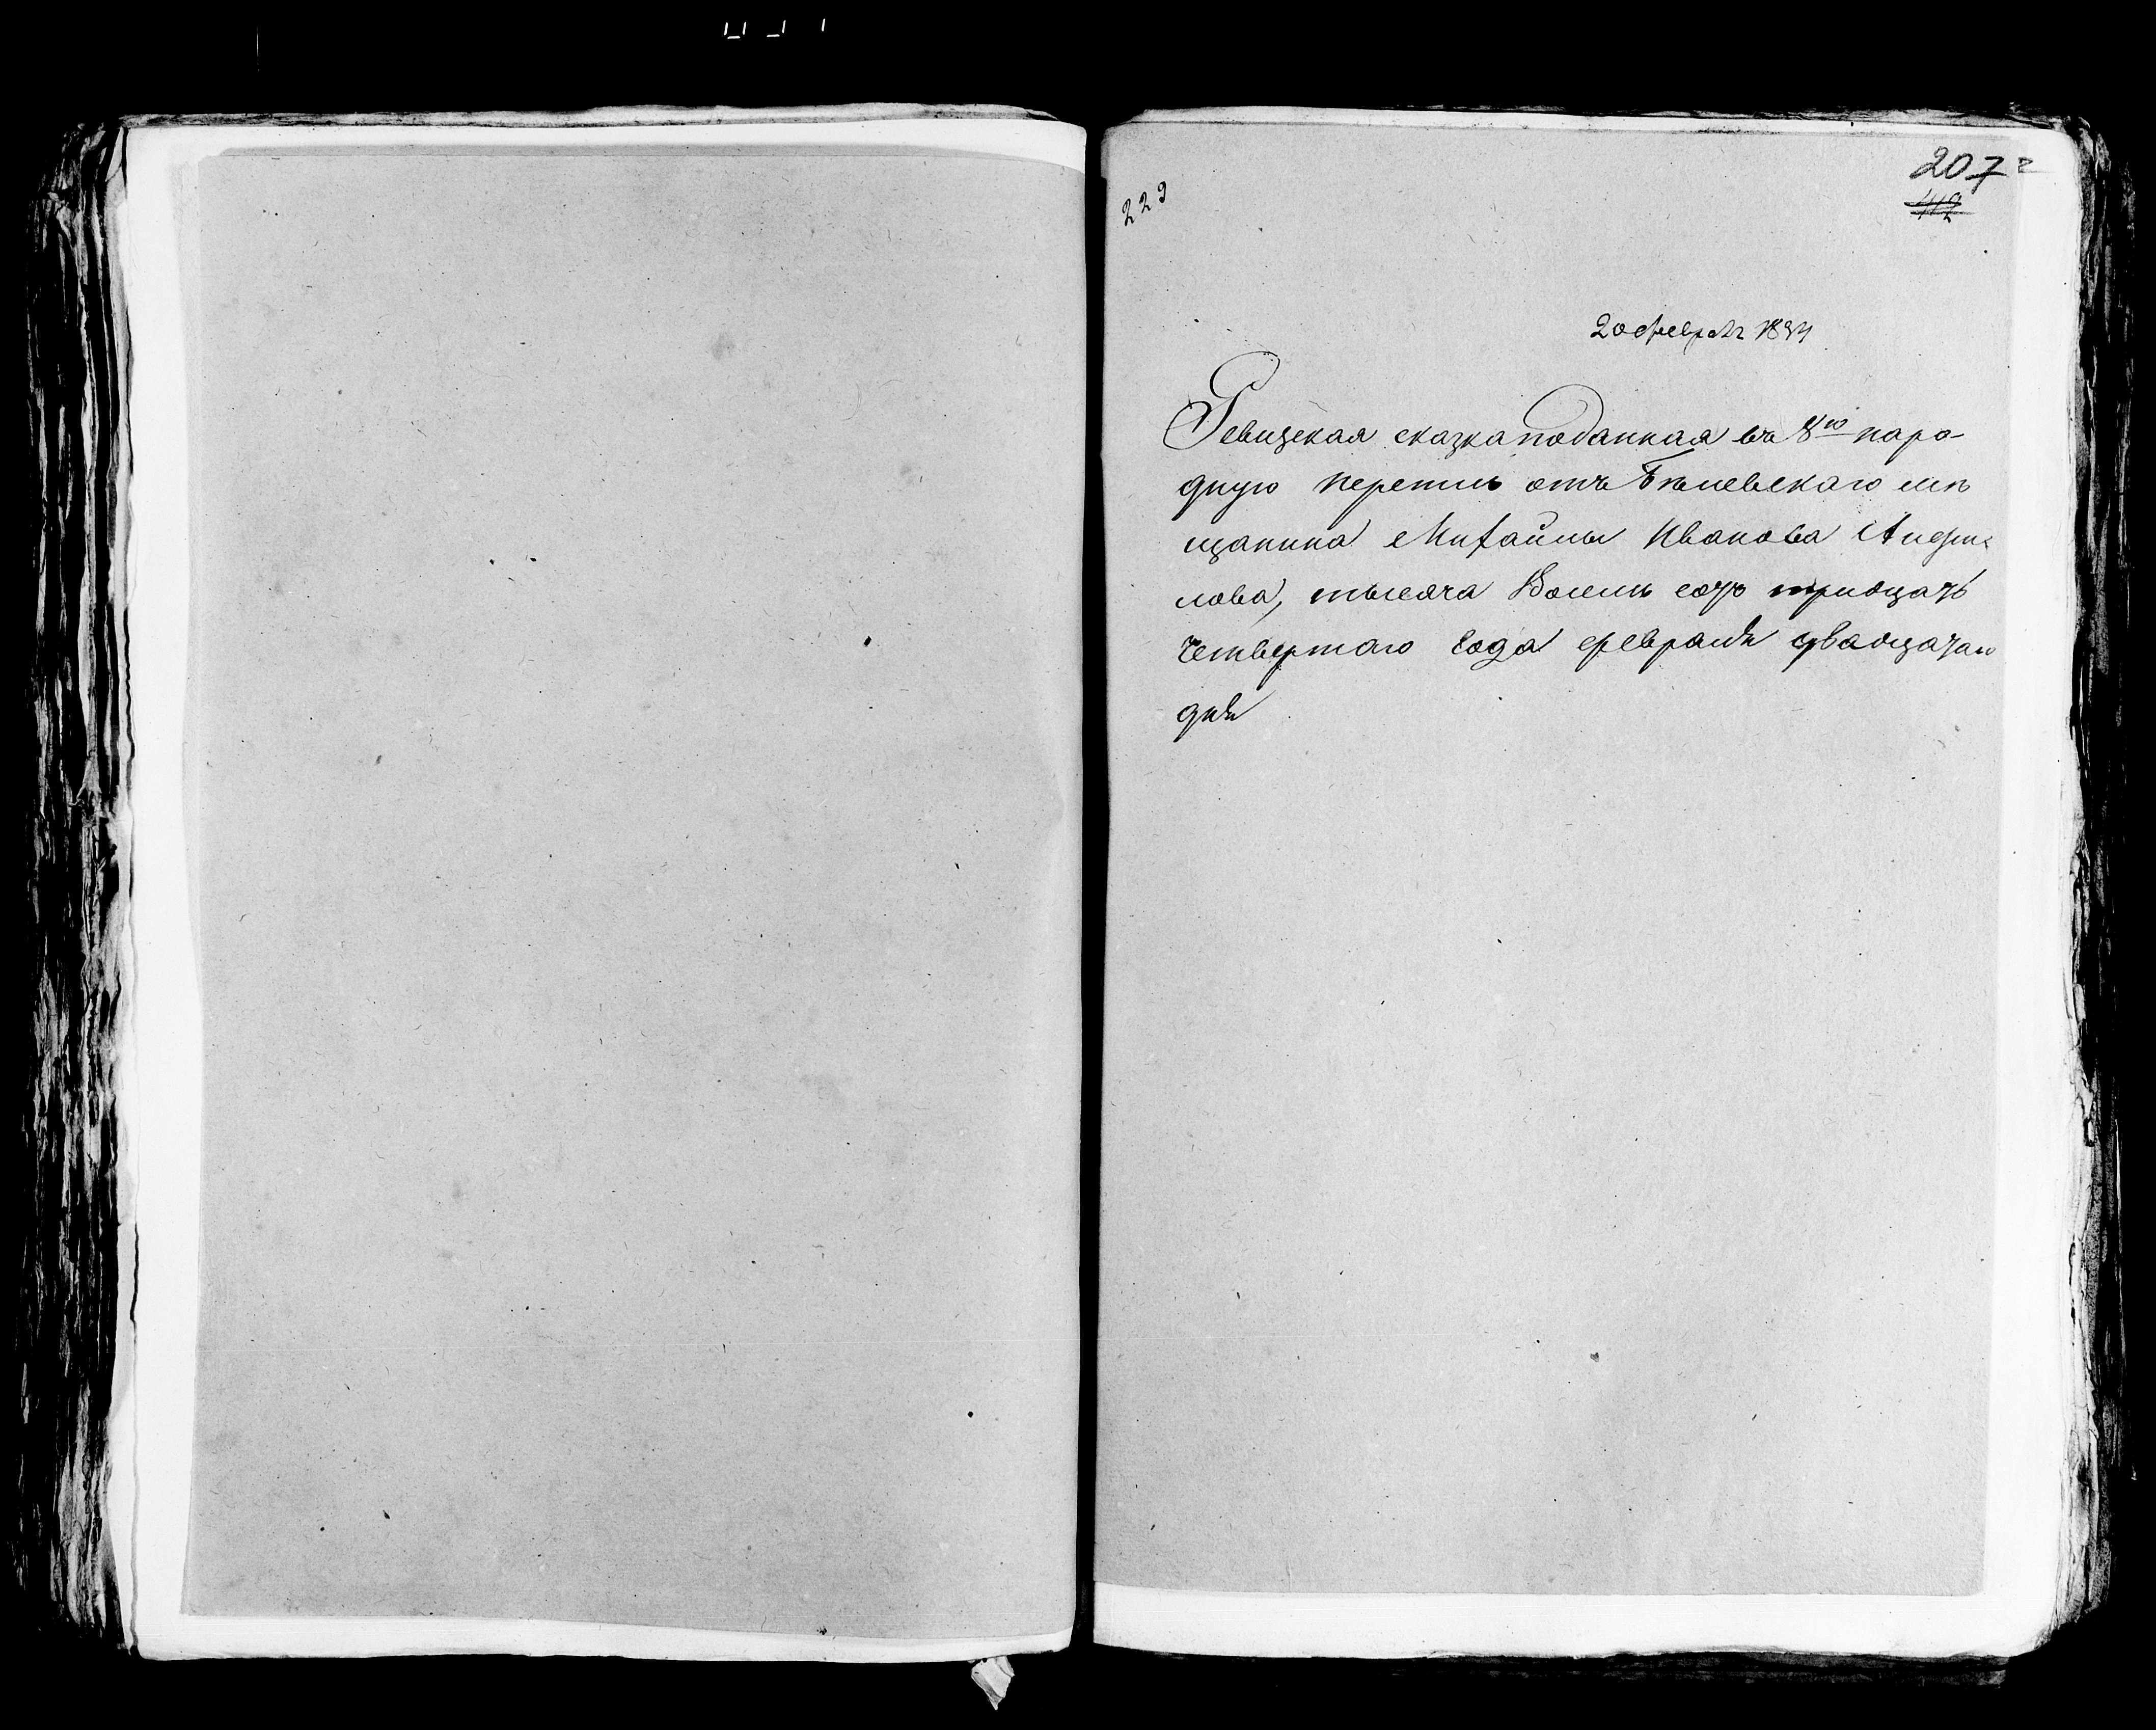 207
229
20 февраля 1834
Ревизская сказка поданная въ 8ю наро-
дную перепись отъ Белевскаго мѣ
щанина Михайлы Иванова
лова, тысяча Восемь сотъ тридцать
четвертаго года февраля двадцатаго
дня